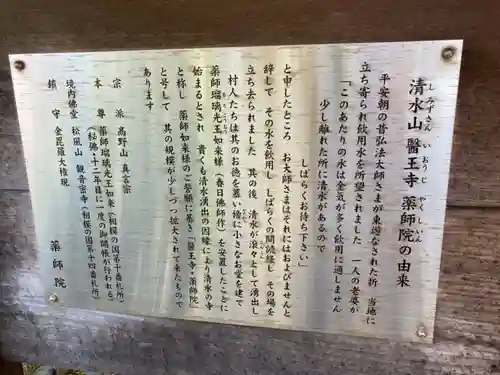 清水山 醫王寺 薬師院の由来
しみずさん いおうじ やくしいん
平安朝の昔弘法大師さまが東巡なされた折 当地に
立ち寄られ飲用水を所望されました 一人の老婆が
「このあたりの水は金気が多く飲用に適しません
少し離れた所に清水があるので
しばらくお待ち下さい」
と申したところ お大師さまはそれにはおよびませんと
辞して その水を飲用し しばらくの間読経し その場を
立ち去られました 其の後 清水が滾々として湧出し
村人たちは其のお徳を慕い後に小さなお堂を建て
薬師瑠璃光王如来(春日佛師作)を安置したことに
始まるとされ 貴くも清水湧出の因縁により清水の寺
と称し 薬師如来様のご誓願に基き 醫王寺・薬師院
と号して 其の規模が少しづつ拡大されて来たもので
あります
宗 派 高野山 真言宗
本 尊 薬師瑠璃光王如来(相模の国第十番札所)
(秘佛・十二年目に一度の御開帳が行われる)
境内佛堂 松風山 観音密寺(相模の国第十四番札所)
鎮 守 金毘羅大権現
薬師院